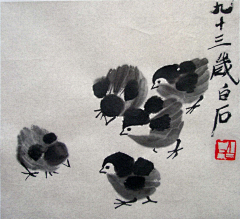 九十三歲白石